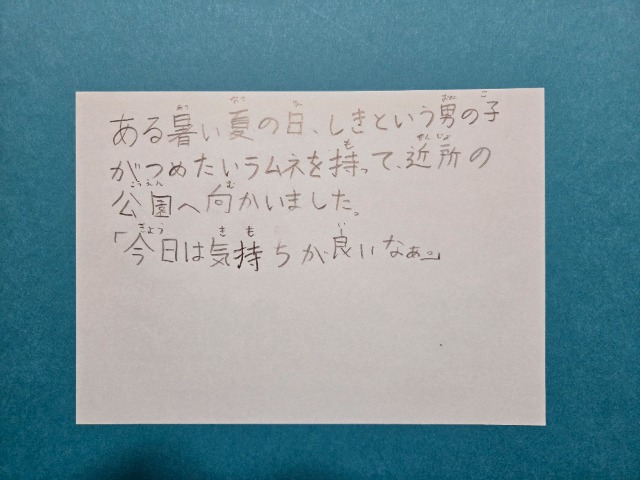 ある暑い夏の日、しきという男の子
がつめたいラムネを持って、近所の
公園へ向かいました。
「今日は気持ちが良いなぁ。」